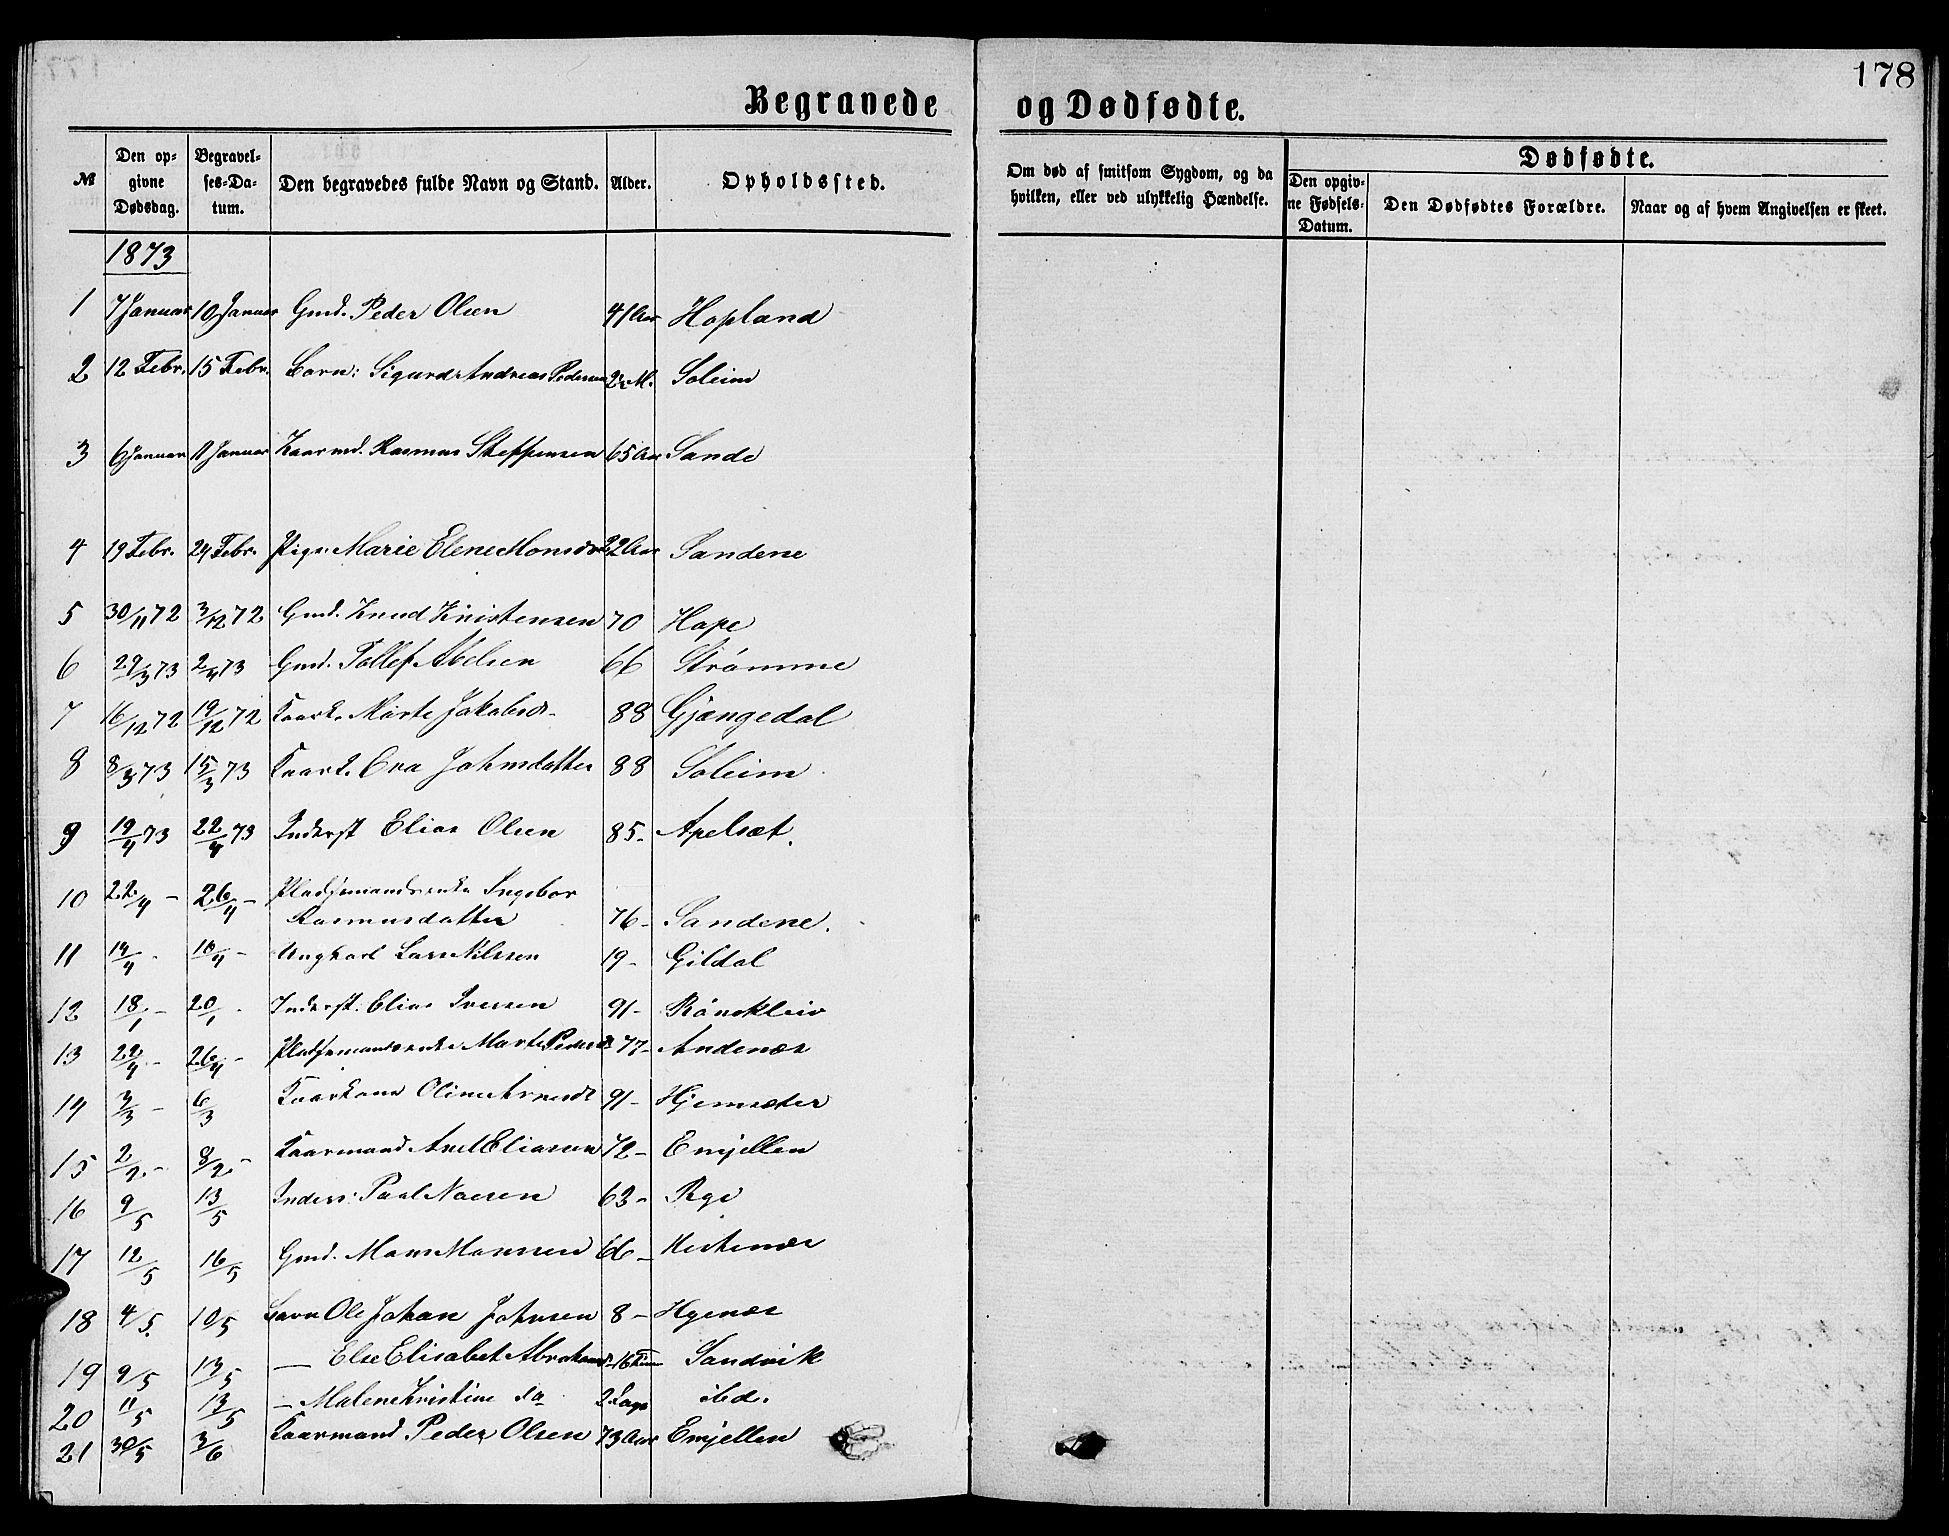 178
Begravede og Dødfødte.
№ Den opgivne Dødsdag. Begravelses-Datum. Den begravedes fulde Navn og Stand. Alder. Opholdssted. Om død af smitsom Sygdom, og da hvilken, eller ved ulykkelig Hændelse. Dødfødte. Den opgivne Fødsels-Datum. Den Dødfødtes Forældre. Naar og af hvem Angivelsen er skeet.
1873
1 7 Januar 10 Januar Gmd. Peder Olsen 41 Aar Hopland
2 12 Febr. 15 Febr. Barn: Sigurd Andreas Pedersen M. Soleim
3 6 Januar Januar Kaarmd. Rasmus Steffensen 65 Aar Sande
4 19 Febr. 24 Febr. Pige: Marie Elene Monsdr 22 Aar Sandene
5 30/11 72 3/12 72 Gmd. Knud Kristensen 70 Hope
6 29/3 73 2/4 73 Gmd. Tollef Abelsen 66 Strømme
7 16/12 72 19/12 72 Kaark. Marte Jakobsdr. 88 Gjængedal
8 8/3 73 15/3 73 Kaark. Eva Johnsdatter 88 Soleim
9 19/4 73 22/4 73 Inderst Elias Olsen 85 - Apelsæt.
10 22/4 - 26/4 - Pladsmandsenke Ingebor
Rasmusdatter 76 - Sandene.
11 14/4 - /4 - Ungkarl Lars Nilssen 19 - Gildal
12 18/1 - 20/1 - Inderst: Elias Iversen 91 - Rønekleiv
13 22/4 - 26/4 - Pladsmandsenke Marte Pedersd 77 - Andenæs
14 3/3 - 6/3 Kaarkone Oline Arnesdr 91 - Hjemsæter
15 2/2 - 8/2 - Kaarmand Anel Eliassen 72 - Emjellen
16 9/5 13/5 Inders: Paul 63 - Ryg
17 12/5 16/5 Gmd. Mons Monssen 66 - Hestenæs
18 4/5. 10/5 Barn Ole Johan Johnsen 8 - Hyenæs
19 9/5 13/5 — Else Elisabet Abrahamsd. 16 Sandvik
20 11/5 13/5 — Malene Kristine do 2 Dage ibd.
21 30/5 3/6 Kaarmand Peder Olsen 73 Aar Emjellen